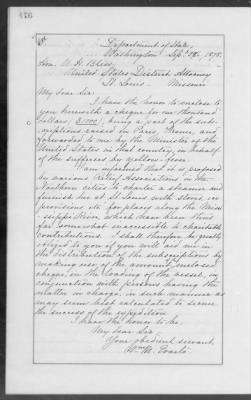 476
Department of State,
Washington Sept. 1878.
Hon. W. H. Bliss,
United States District Attorney
St. Louis Missouri
My dear Sir:
I have the honor to enclose to
you herewith a cheque for one thousand
dollars, $1000, being a part of the sub-
scriptions raised in Paris, France, and
forwarded to me by the Minister of the
United States in that country, in behalf
of the sufferers by yellow-fever.
I am informed that it is proposed
by various Relief Associations in the
Northern cities to charter a steamer and
furnish her at St Louis with stores, in
provisions &c for places along the Miss-
issippi River, which have been thus
far somewhat inaccessible to charitable
contributions. I shall therefore be greatly
obliged to you if you will aid me in
the distribution of the subscriptions by
making use of the amount of enclosed
cheque, in the loading of the vessel, in
conjunction with persons having the
matter in charge, in such manner as
may seem best calculated to secure
the success of the expedition.
I have the honor to be,
My dear Sir
Your obedient servant,
Wm. M. Evarts.